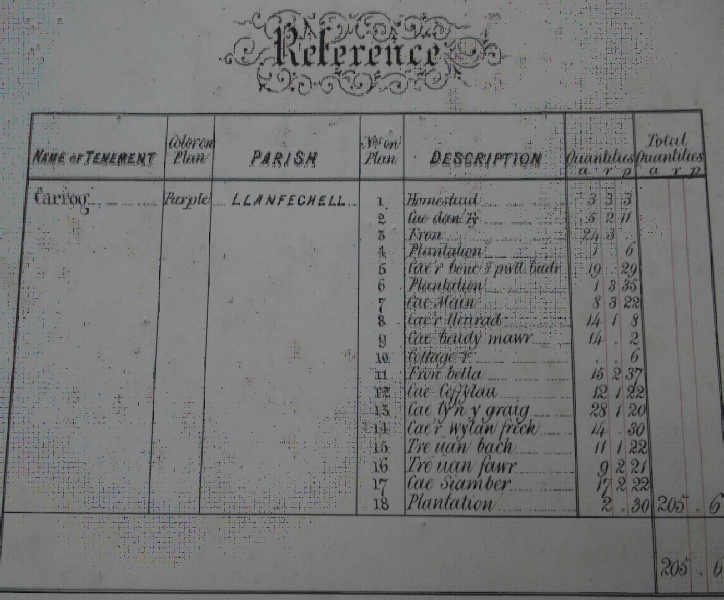 Reference
NAME OF TENEMENT Color on Plan PARISH Nos on Plan DESCRIPTION Quantities a r p Total Quantities a r p
Carrog Purple LLANFECHELL 1 Homestead 3 3 3
2 Cae dan Ty 5 2 11
3 Fron 24 3 .
4 Plantation 1 . 6
5 Cae'r bonc & pwll budr 19 . 29
6 Plantation 1 3 35
7 Cae Main 8 3 22
8 Cae'r 14 1 8
9 Cae beudy mawr 14 . 2
10 Cottage . . 6
11 Fron bella 15 2 37
12 Cae Ceffylau 12 1 22
13 Cae ty'n y graig 28 1 20
14 Cae'r wylan frech 14 . 30
15 Tre uan bach 11 1 22
16 Tre uan fawr 9 2 21
17 Cae Siamber 17 2 22
18 Plantation 2 . 30 205 . 6
205 . 6